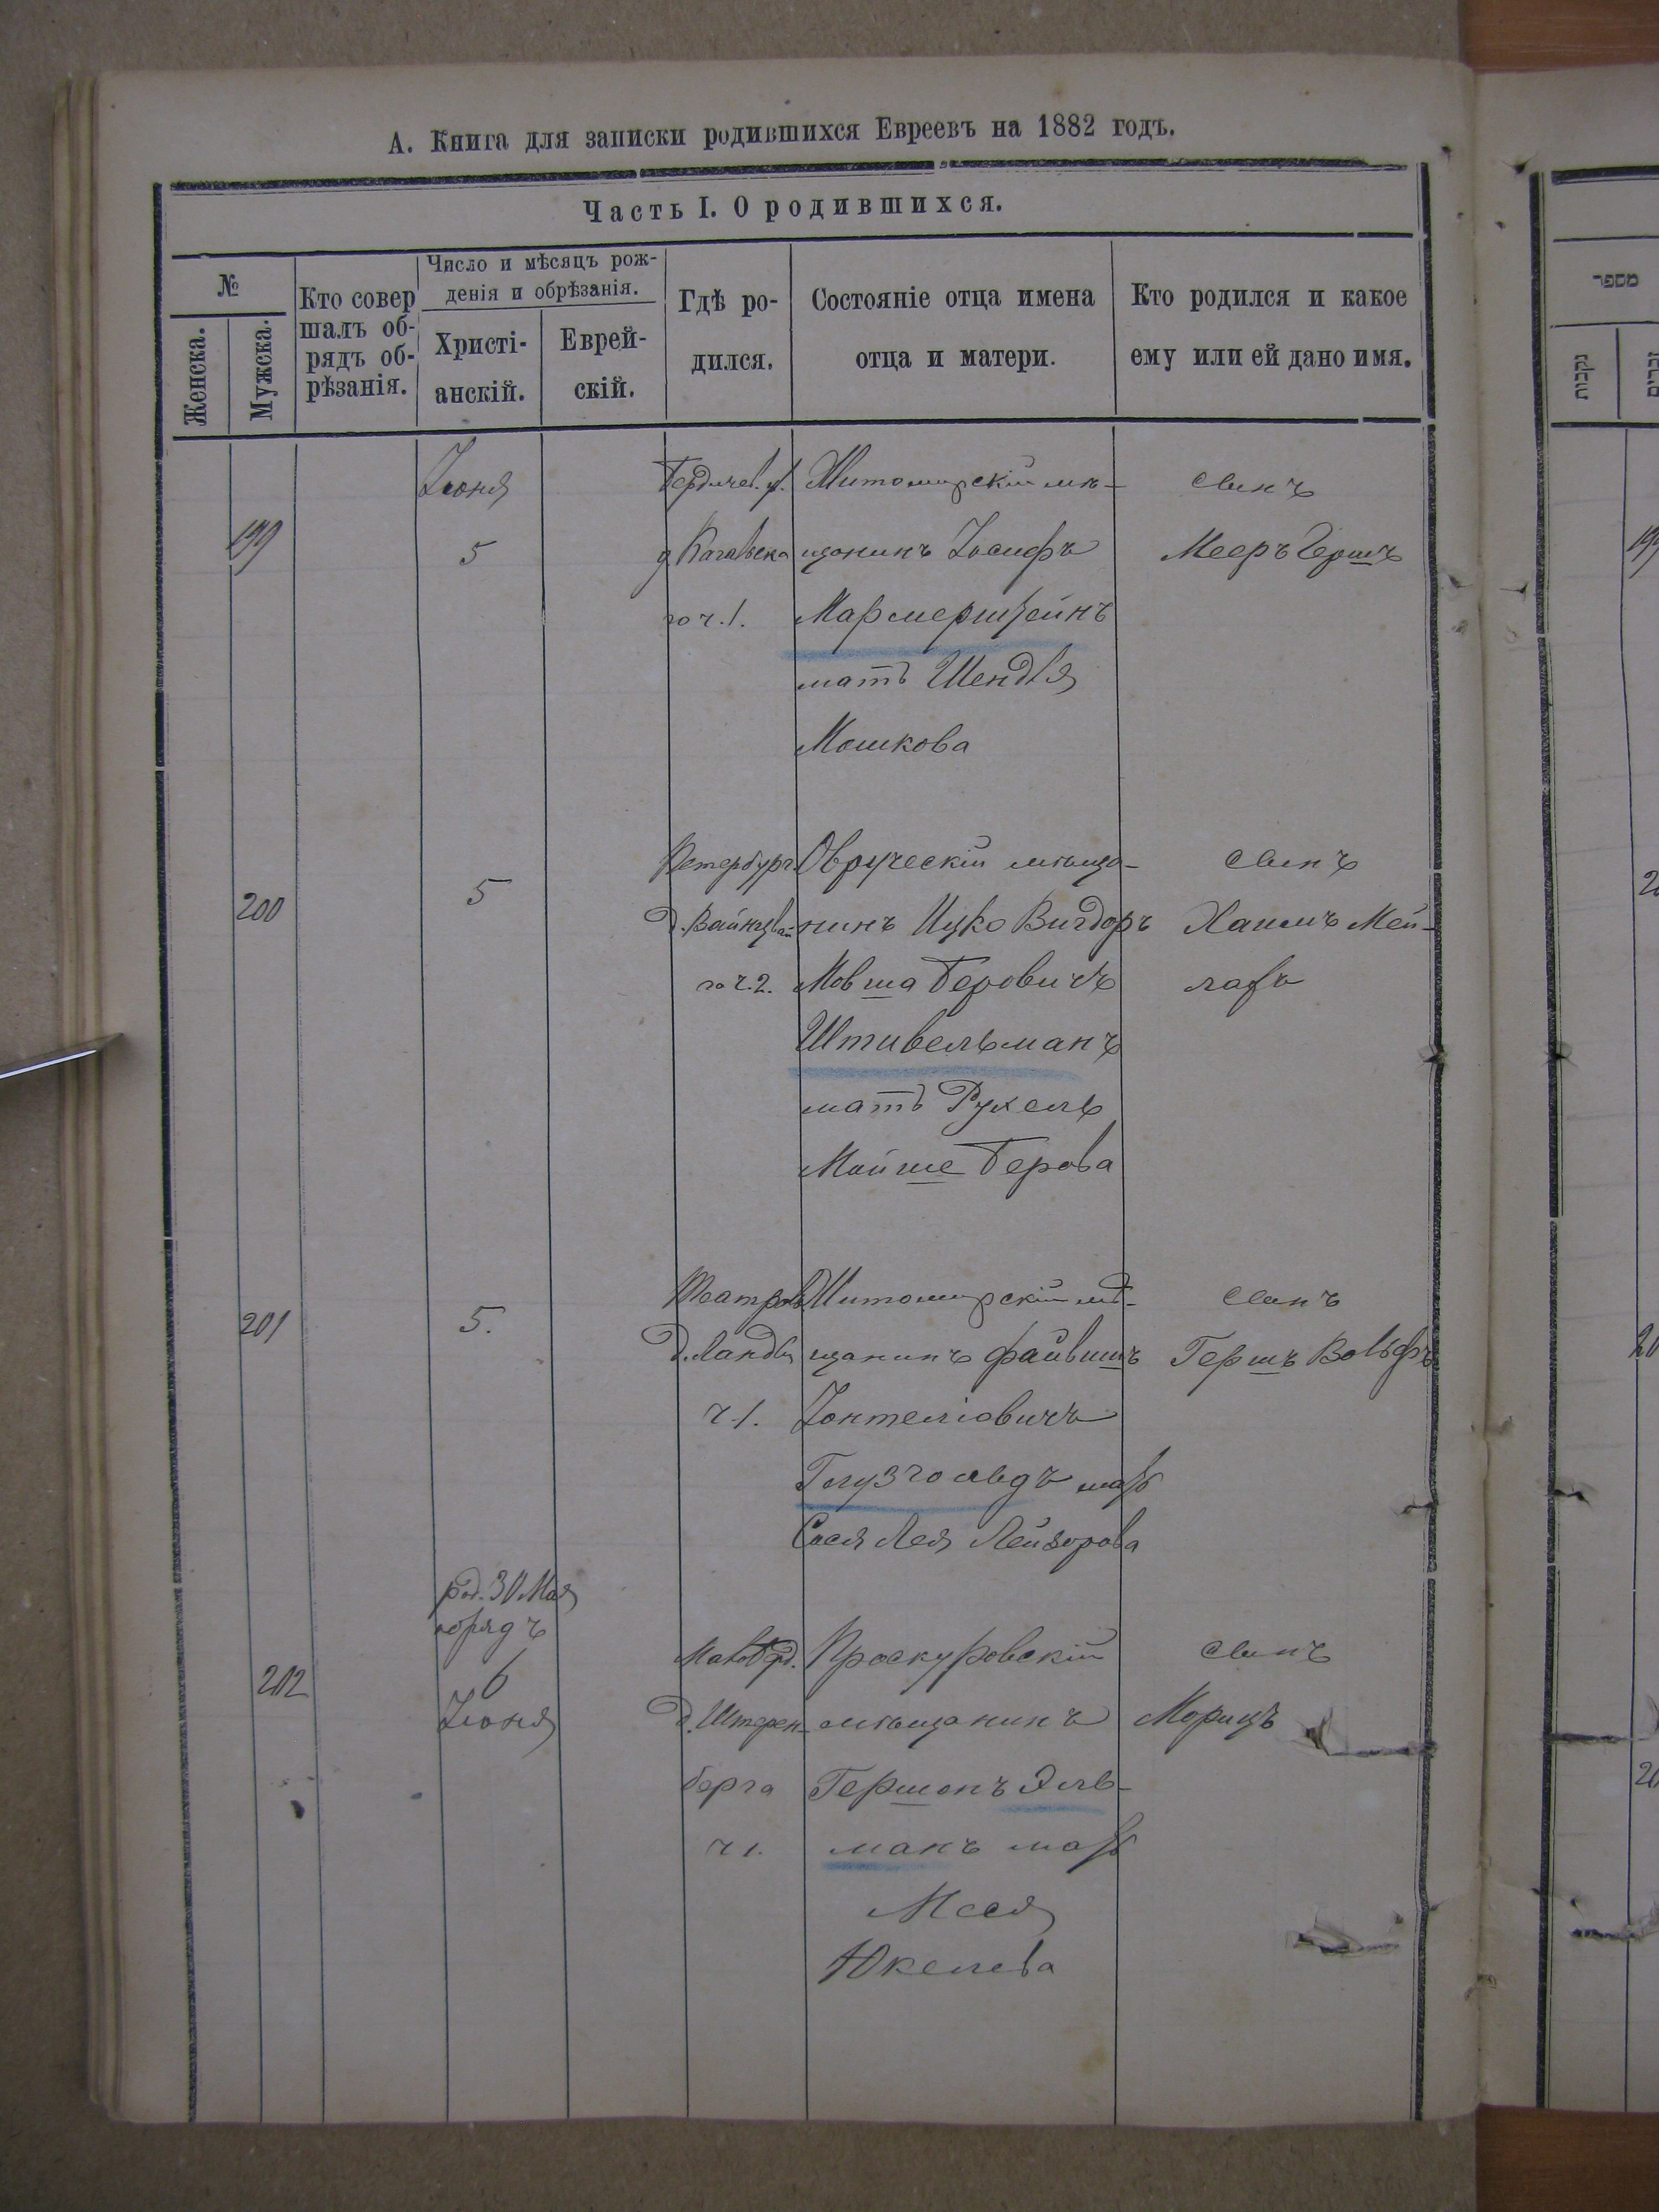 А. Книга для записки родившихся Евреевъ на 1882 годъ.
Часть I. О родившихся.
№
Женска.
Мужска.
Кто совер
шалъ об-
рядъ об-
рѣзанія.
Число и мѣсяцъ рож-
денія и обрѣзанія.
Христі-
анскій.
Еврей-
скій.
Гдѣ ро-
дился.
Состояніе отца имена
отца и матери.
Кто родился и какое
ему или ей дано имя.
מספר
נקבות
זכרים
199
Іюня
5
Бердичев. у.
го ч. 1.
Житомирскій мѣ-
щанинъ Іосифъ
Мармерштейнъ
мать Шендля
Мошкова
сынъ
Мееръ Гершъ
200
5
Петербург.
го ч. 2.
Овруческій мѣща-
нинъ Ицко Вигдоръ
Мовша Беровичъ
Штивельманъ
мать Рухель
Мойше Берова
сынъ
Хаимъ Мей-
лахъ
201
5.
Театров.
ч. 1.
Житомирскій мѣ-
щанинъ Файвишъ
Іонтеліовичъ
Глузгольдъ мать
Сося Лея Лейзорова
сынъ
Гершъ Вольфъ
202
род. 30 Мая
обрядъ
6
Іюня
д. Штерен-
берга
ч 1.
Проскуровскій
мѣщанинъ
Гершонъ Эль-
манъ мать
Ася
Юкелева
сынъ
Морицъ